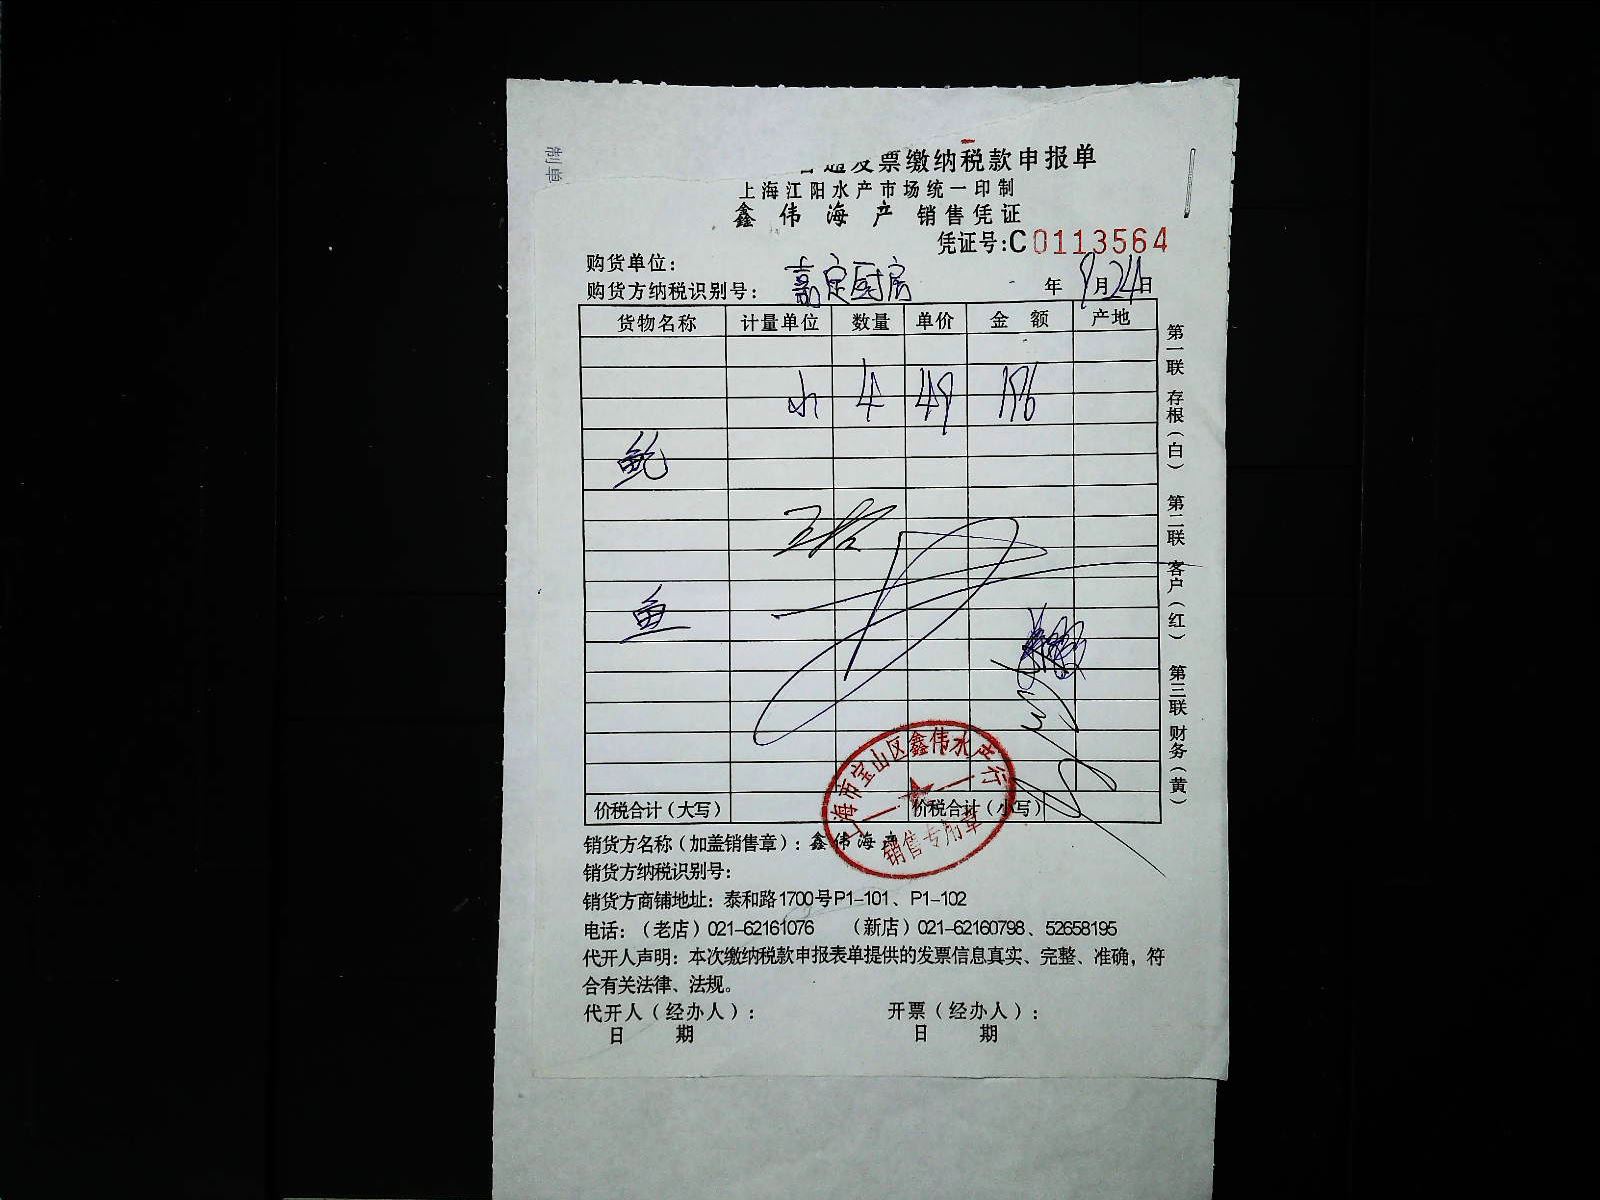 制单
发票缴纳税款申报单
上海江阳水产市场统一印制
鑫伟海产 销售凭证
凭证号:C0113564
购货单位:
购货方纳税识别号: 嘉定厨房 年9月24日
货物名称 计量单位 数量 单价 金额 产地
4 49 196
鲍
鱼
价税合计(大写) 价税合计(小写)
上海市宝山区鑫伟水产行
销售专用章
销货方名称(加盖销售章): 鑫伟海产
销货方纳税识别号:
销货方商铺地址: 泰和路1700号P1-101、P1-102
电话:(老店)021-62161076 (新店)021-62160798、52658195
代开人声明: 本次缴纳税款申报表单提供的发票信息真实、完整、准确, 符
合有关法律、法规。
代开人(经办人): 开票(经办人):
日期 日期
第一联 存根(白) 第二联 客户(红) 第三联 财务(黄)